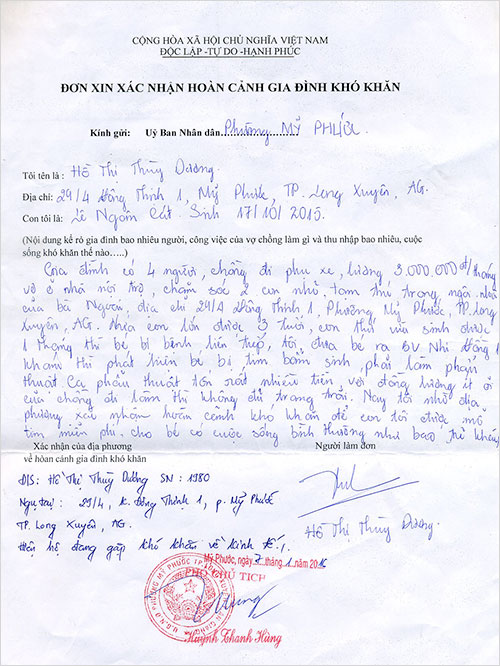 CỘNG HÒA XÃ HỘI CHỦ NGHĨA VIỆT NAM
ĐỘC LẬP -TỰ DO -HẠNH PHÚC
ĐƠN XIN XÁC NHẬN HOÀN CẢNH GIA ĐÌNH KHÓ KHĂN
Kính gửi: Uỷ Ban Nhân dân Phường MỸ PHƯỚC.
Tôi tên là : Hồ Thị Thùy Dương
Địa chỉ: 29/4 Đông Thịnh 1, Mỹ Phước, TP. Long Xuyên, AG.
Con tôi là: Lê Ngôn Cát. Sinh 17/10/2015.
(Nội dung kể rõ gia đình bao nhiêu người, công việc của vợ chồng làm gì và thu nhập bao nhiêu, cuộc
sống khó khăn thế nào.....)
Gia đình có 4 người, chồng đi phụ xe, lương 3.000.000đ/tháng
vợ ở nhà nội trợ, chăm sóc 2 con nhỏ. tạm trú trong ngôi nhà
của bà Ngoại, địa chỉ 29/4 Đông Thịnh 1, Phường Mỹ Phước, TP. Long
Xuyên, AG. Nhà con lớn được 3 tuổi, con thứ vừa sinh được
1 tháng thì bé bị bệnh liên tiếp, tôi đưa bé ra BV Nhi Đồng 1
khám thì phát hiện bé bị tim bẩm sinh, phải làm phẫu
thuật. Ca phẫu thuật tốn rất nhiều tiền với đồng lương ít ỏi
của chồng đi làm thì không đủ trang trải. Nay tôi nhờ địa
phương xác nhận hoàn cảnh khó khăn để con tôi được mổ
tim miễn phí. cho bé có cuộc sống bình thường như bao trẻ khác
Xác nhận của địa phương
Người làm đơn
về hoàn cảnh gia đình khó khăn
Hồ Thị Thùy Dương SN : 1980
Ngụ tại : 29/4, K. Đông Thịnh 1, p. Mỹ Phước
TP. Long Xuyên, AG.
Hiện hộ đang gặp khó khăn về kinh tế.
Hồ Thị Thùy Dương
Mỹ Phước, ngày 7 tháng 1 năm 2016
PHÓ CHỦ TỊCH
Huỳnh Thanh Hùng